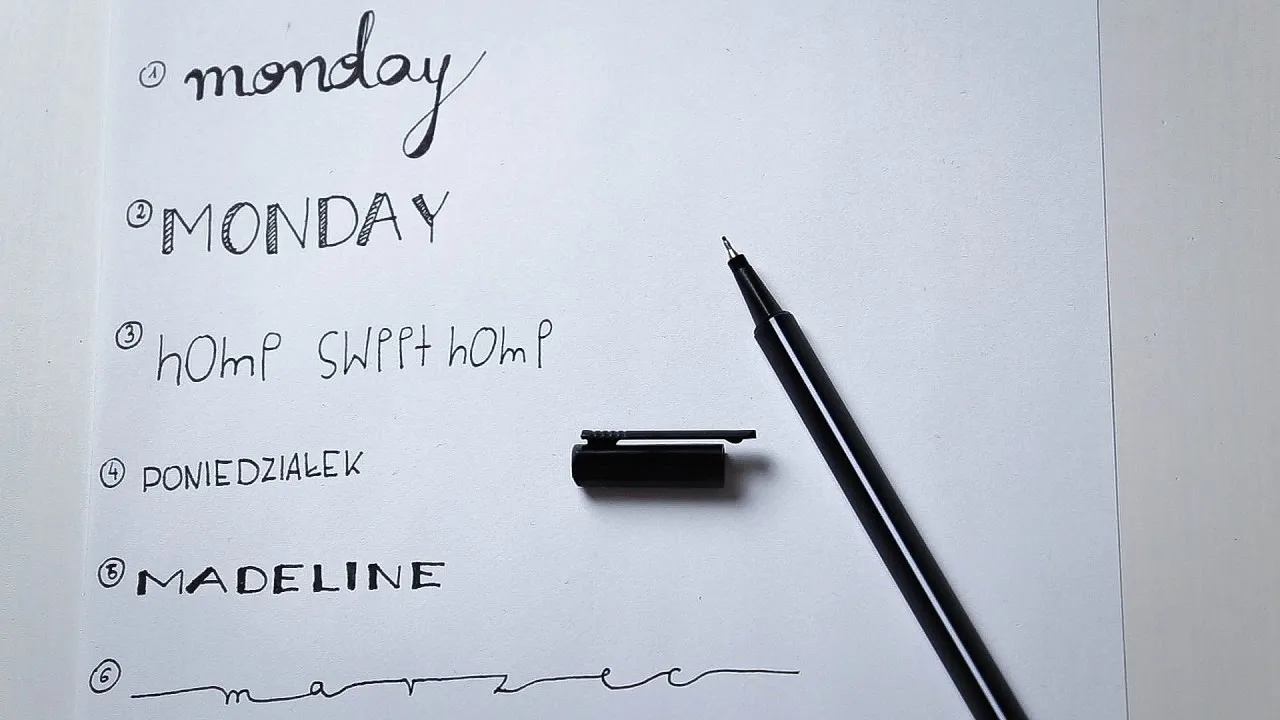 ① monday
② MONDAY
③ hOme sweet hOme
④ PONIEDZIAŁEK
⑤ MADELINE
⑥ marzec